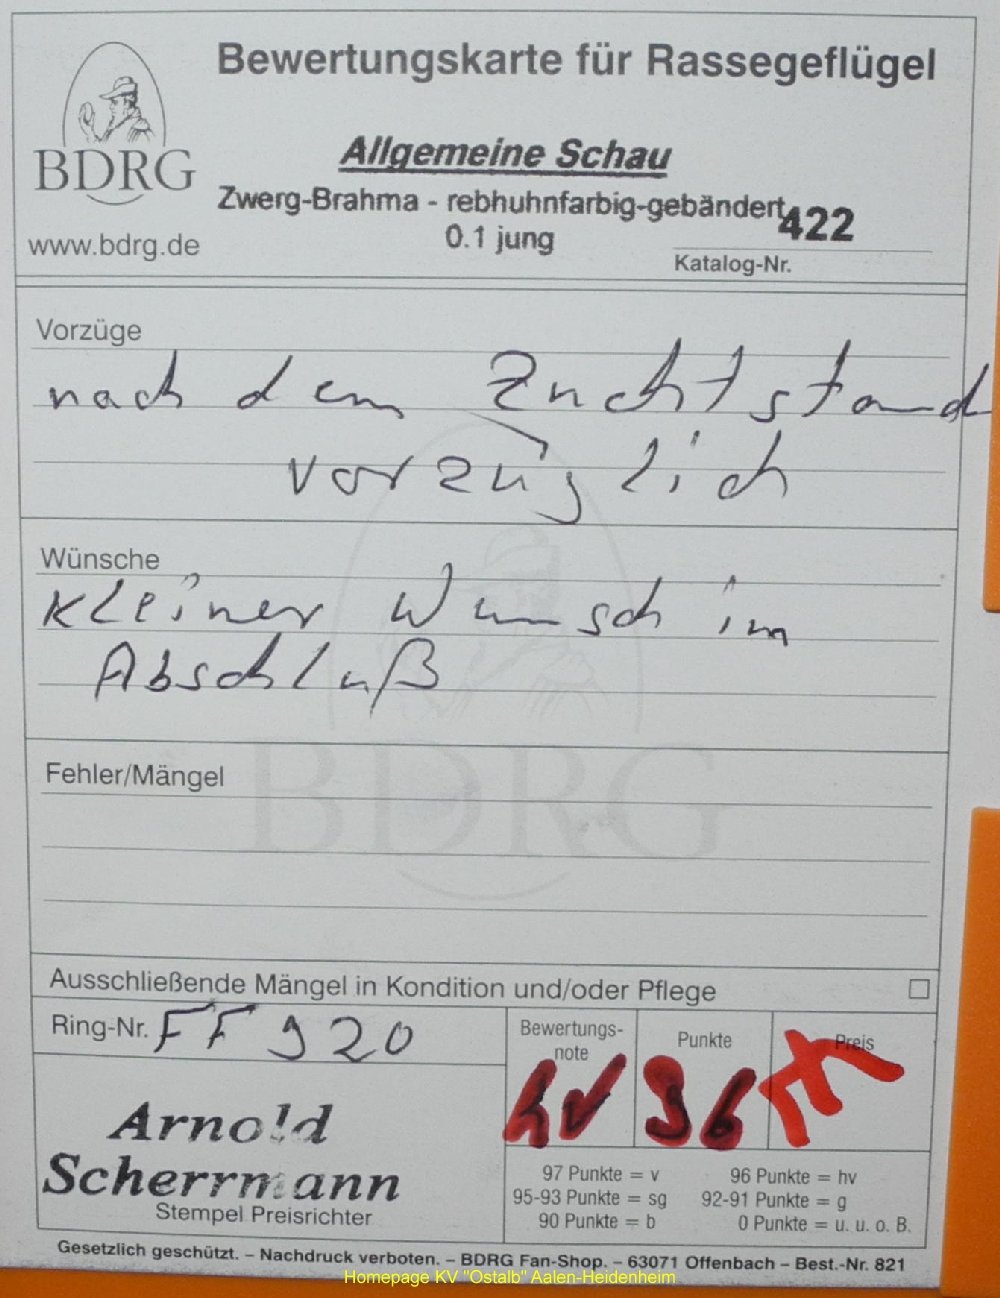 Bewertungskarte für Rassegeflügel
BDRG
www.bdrg.de
Allgemeine Schau
Zwerg-Brahma - rebhuhnfarbig-gebändert
0.1 jung
422
Katalog-Nr.
Vorzüge
nach dem Zuchtstand
vorzüglich
Wünsche
kleiner Wunsch im
Abschluß
BDRG
Fehler/Mängel
Ausschließende Mängel in Kondition und/oder Pflege
Ring-Nr. FF 920
Arnold
Scherrmann
Stempel Preisrichter
Bewertungs-
note
hv
Punkte
96
Preis
97 Punkte = v 96 Punkte = hv
95-93 Punkte = sg 92-91 Punkte = g
90 Punkte = b 0 Punkte = u. u. o. B.
Gesetzlich geschützt. – Nachdruck verboten. – BDRG Fan-Shop. – 63071 Offenbach – Best.-Nr. 821
Homepage KV "Ostalb" Aalen-Heidenheim